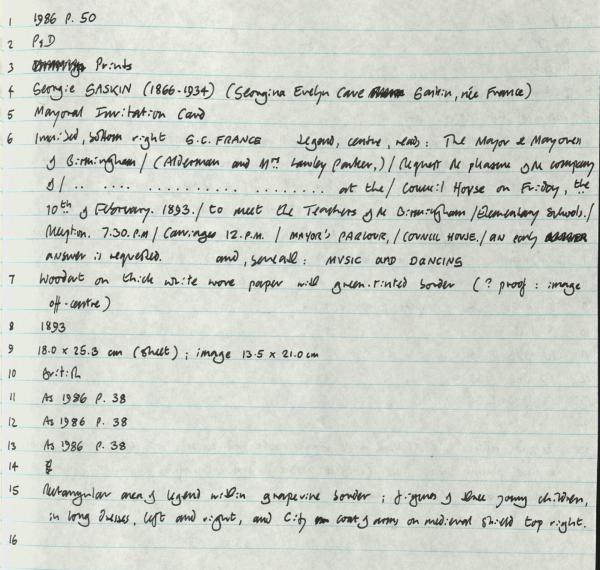 1 1986 P. 50
2 P&D
3 Prints
4 Georgie GASKIN (1866-1934) (Georgina Evelyn Cave Gaskin, née France)
5 Mayoral Invitation Card
6 Inscribed, bottom right G.C. FRANCE Legend, centre, reads: The Mayor & Mayoress
of Birmingham / (Alderman and Mrs Lawley Parker,) / Request the pleasure of the company
of / .. .... .......... .... ........ at the / Council House on Friday, the
10th of February. 1893. / to meet the Teachers of the Birmingham / Elementary Schools. /
Reception. 7.30. P.M / Carriages 12. P.M. / MAYOR'S PARLOUR, / COUNCIL HOUSE. / AN early
answer is requested. and, beneath: MUSIC AND DANCING
7 Woodcut on thick white wove paper with green-tinted border (? proof: image
off-centre)
8 1893
9 18.0 x 25.3 cm (sheet); image 13.5 x 21.0 cm
10 British
11 As 1986 P. 38
12 As 1986 P. 38
13 As 1986 P. 38
14
15 Rectangular area of legend within grapevine border; figures of three young children,
in long dresses, left and right, and City coat of arms on medieval shield top right.
16